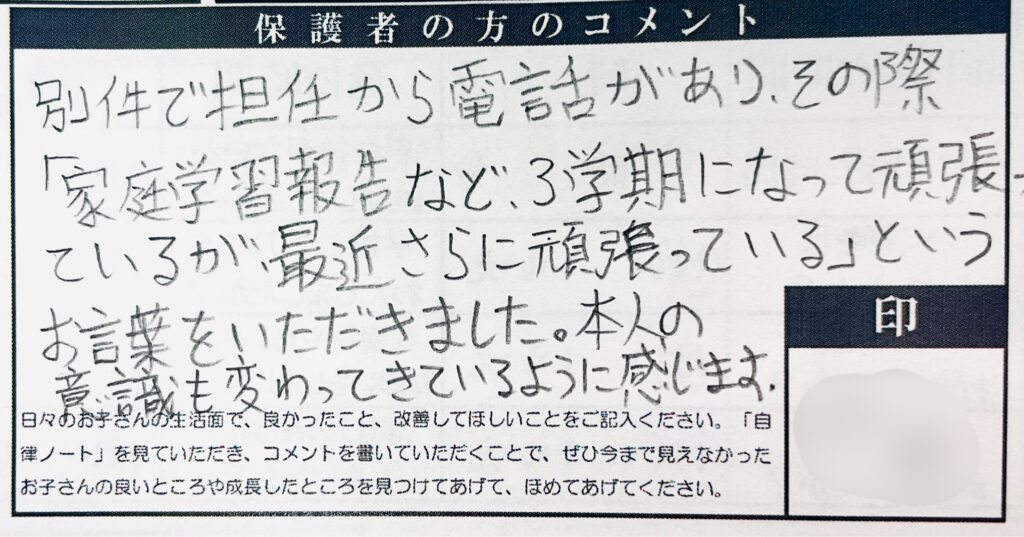 保護者の方のコメント
別件で担任から電話があり、その際
「家庭学習報告など、3学期になって頑張っ
ているが、最近さらに頑張っている」という
お言葉をいただきました。本人の
意識も変わってきているように感じます。
印
日々のお子さんの生活面で、良かったこと、改善してほしいことをご記入ください。「自
律ノート」を見ていただき、コメントを書いていただくことで、ぜひ今まで見えなかった
お子さんの良いところや成長したところを見つけてあげて、ほめてあげてください。